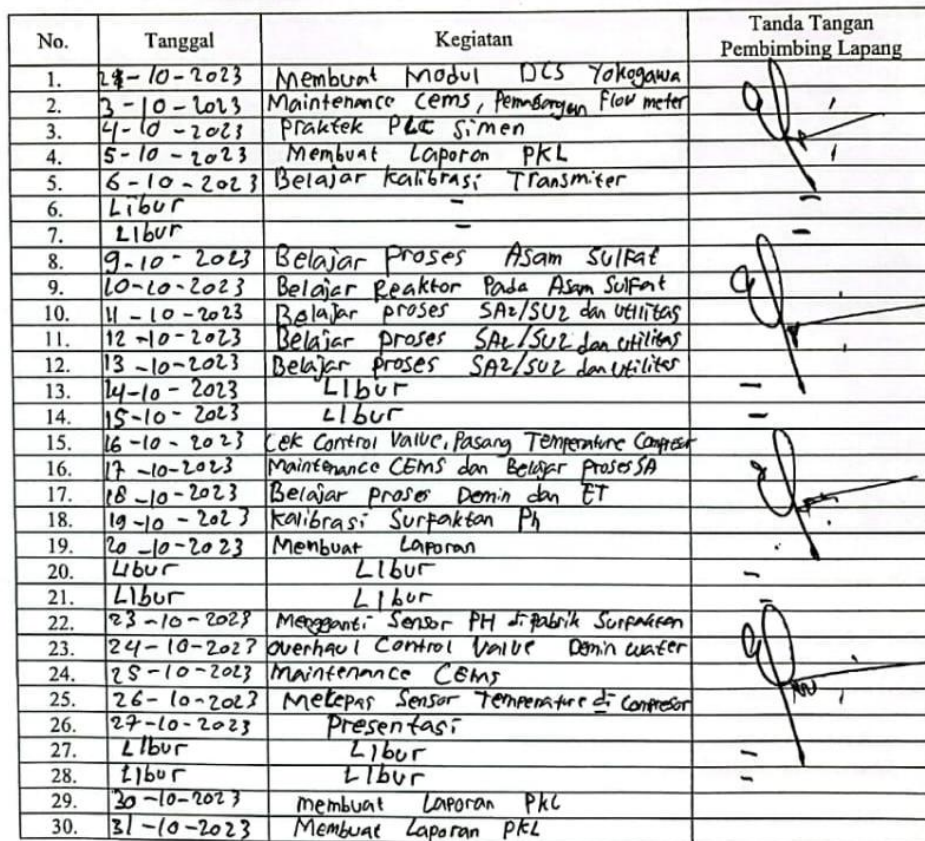 No. Tanggal Kegiatan Tanda Tangan Pembimbing Lapang
1. 2-10-2023 Membuat Modul DCS Yokogawa
2. 3-10-2023 Maintenance Cems, Pemasangan Flow meter
3. 4-10-2023 Praktek PLC Simen
4. 5-10-2023 Membuat Laporan PKL
5. 6-10-2023 Belajar Kalibrasi Transmiter
6. Libur -  -
7. Libur -  -
8. 9-10-2023 Belajar Proses Asam Sulfat
9. 10-10-2023 Belajar Reaktor Pada Asam Sulfat
10. 11-10-2023 Belajar proses SA2/SU2 dan Utilitas
11. 12-10-2023 Belajar proses SA2/SU2 dan Utilitas
12. 13-10-2023 Belajar proses SA2/SU2 dan Utilitas
13. 14-10-2023 Libur -
14. 15-10-2023 Libur -
15. 16-10-2023 Cek Control Value, Pasang Temperature Compresor
16. 17-10-2023 Maintenance CEMS dan Belajar Proses SA
17. 18-10-2023 Belajar proses Demin dan ET
18. 19-10-2023 Kalibrasi Surfaktan Ph
19. 20-10-2023 Membuat Laporan
20. Libur Libur -
21. Libur Libur -
22. 23-10-2023 Mengganti Sensor PH di Pabrik Surfaktan
23. 24-10-2023 Overhaul Control Value Demin water
24. 25-10-2023 Maintenance CEMS
25. 26-10-2023 Melepas Sensor Temperature di Compresor
26. 27-10-2023 Presentasi
27. Libur Libur -
28. Libur Libur -
29. 30-10-2023 membuat Laporan PKL
30. 31-10-2023 Membuat Laporan PKL